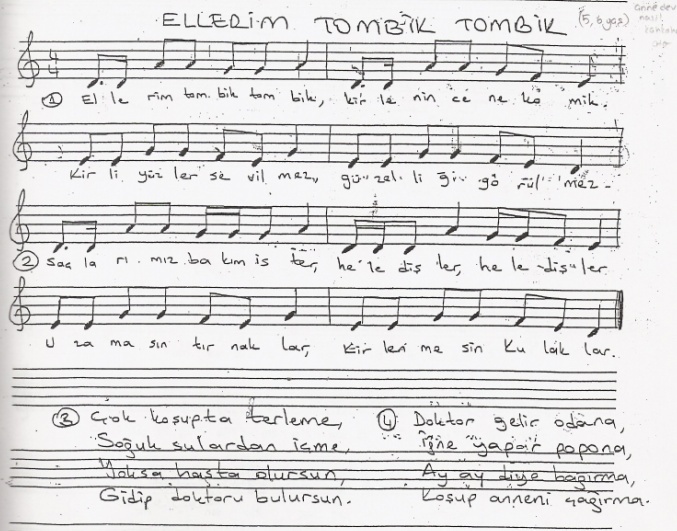 ELLERİM TOMBİK TOMBİK (5, 6 yaş)
① El le rim tom bik tom bik, kir le nin ce ne ko mik.
Kir li yüz ler se vil mez, gü zel li ği gö rül mez.
② Saç la rı mız ba kım is ter, he le diş ler, he le diş ler
U za ma sın tır nak lar, kir len me sin ku lak lar.
③ Çok koşupta terleme,
Soğuk sulardan içme,
Yoksa hasta olursun,
Gidip doktoru bulursun.
④ Doktor gelir odana,
İğne yapar popona,
Ay ay diye bağırma,
Koşup anneni çağırma.